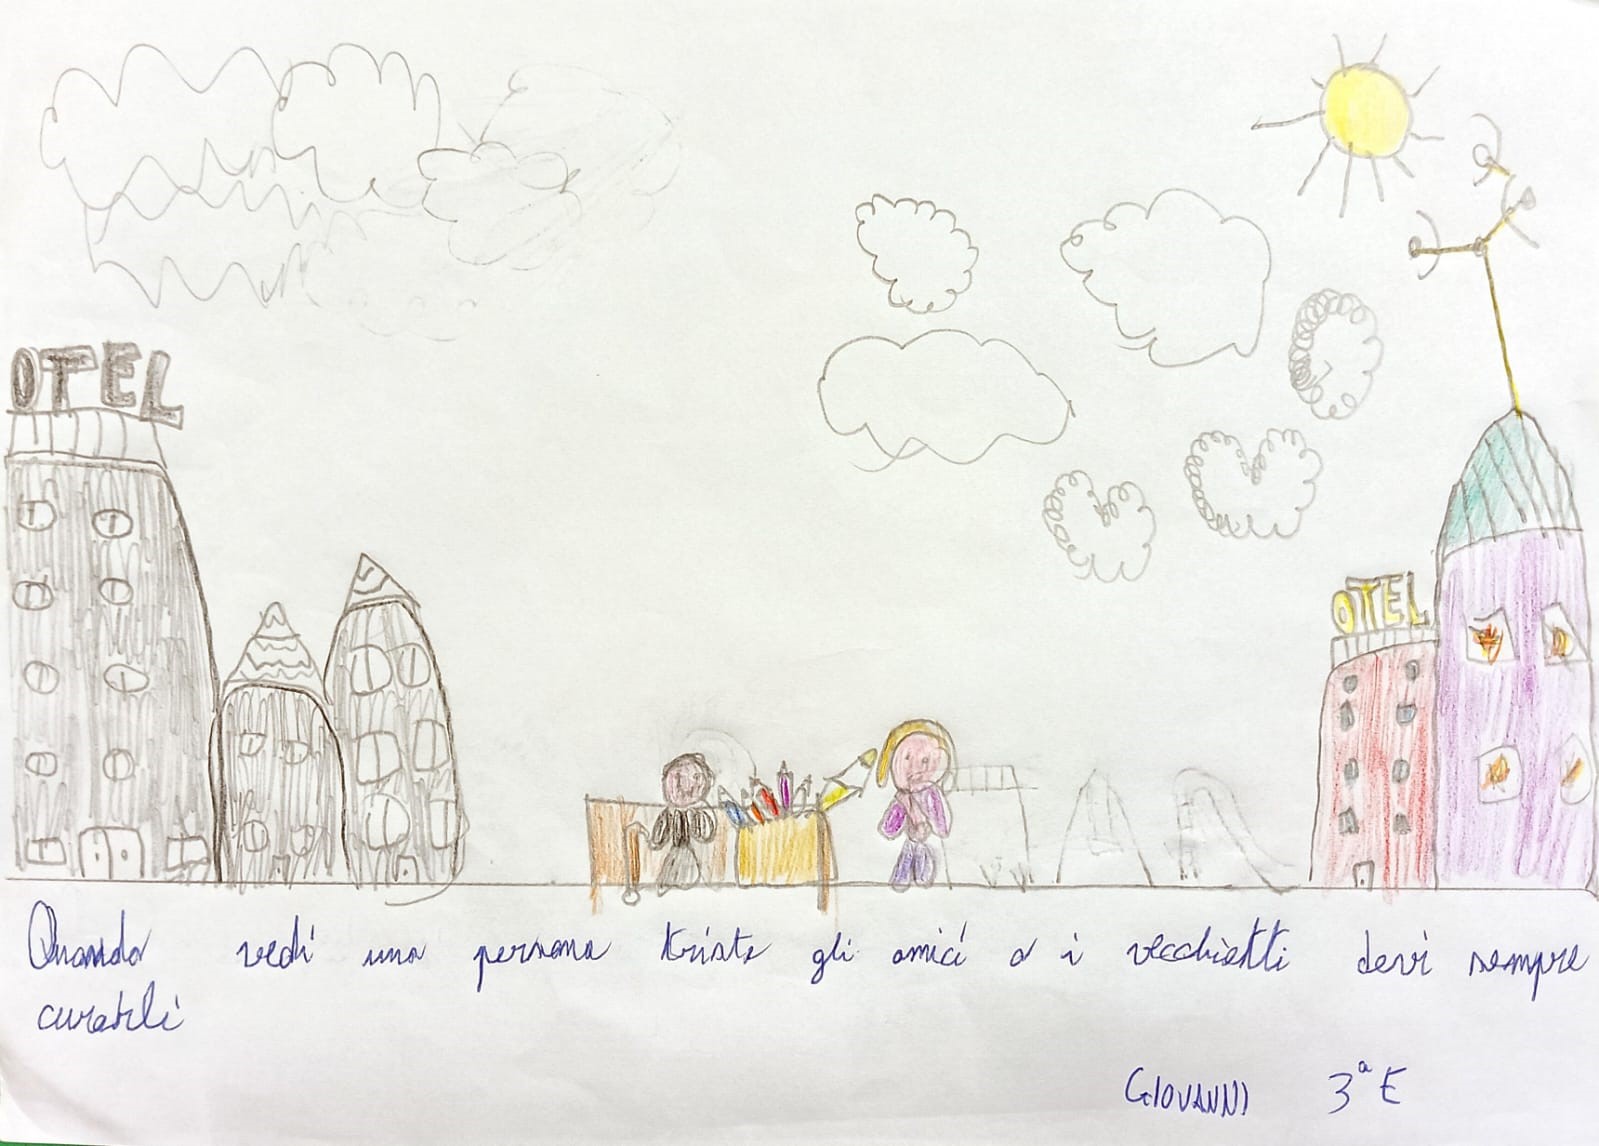 OTEL
OTEL
Quando vedi una persona triste gli amici o i vecchietti devi sempre
curarli
GIOVANNI 3ª E